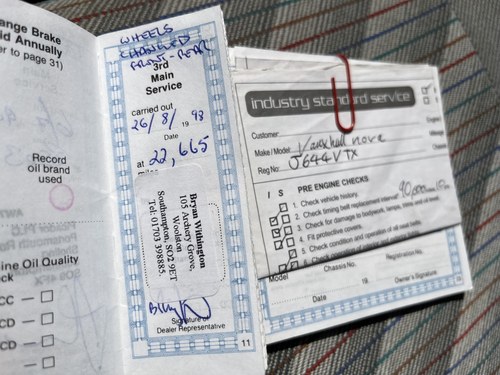 ange Brake
id Annually
r to page 31)
Record
oil brand
used
ine Oil Quality
CC –
CD –
CD –
WHEELS
CHANGED
FRONT - REAR
3rd
Main
Service
carried out
26/8/ 19 98
Date
at 22,665
miles
Bryan Withington
105 Archery Grove,
Woolston
Southampton, SO2 9ET
Tel: 01703 398885.
Signature of
Dealer Representative
11
industry standard service
Customer
Make / Model Vauxhall nova
Reg No: J644VTX
Engine
Mileage
I S PRE ENGINE CHECKS
1. Check vehicle history.
2. Check timing belt replacement interval 90,000
3. Check for damage to bodywork, lamps,
4. Fit protective covers.
5. Check condition and operation of all seat belts.
6. Check
Model
Chassis No.
Registration No.
Date 19
Owner's Signature